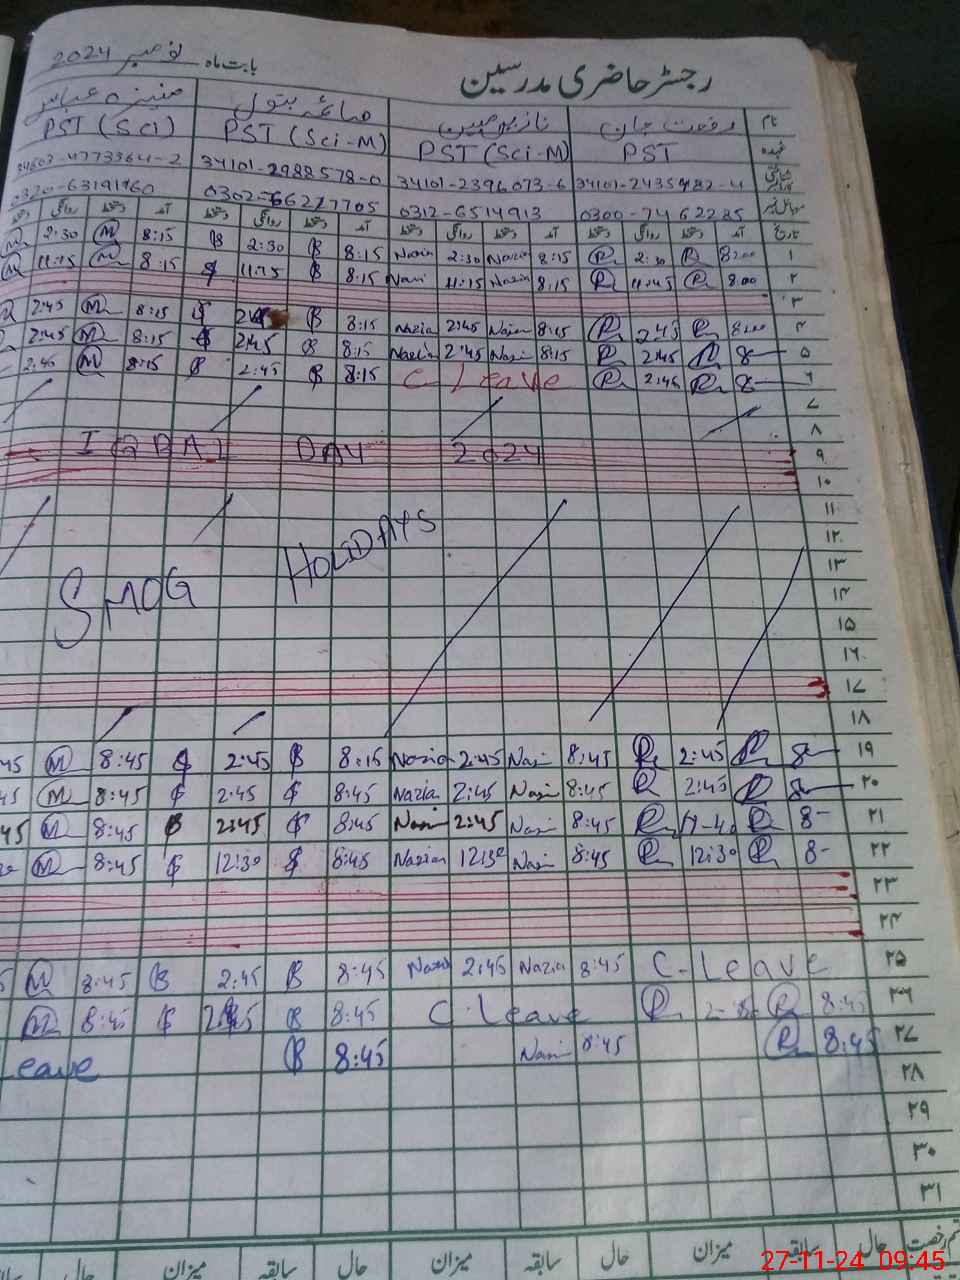 رجسٹر حاضری مدرسین بابت ماہ نومبر 2024
نام رفعت جان صائمہ بتول منیزہ عباس
عہدہ PST PST (Sci-M) PST (Sci-M) PST (Sci)
34101-2396073-6 34101-2988578-0 34603-4773364-2
موبائل نمبر 0300-7462285 0312-6514913 0302-6627705
تاریخ آمد دستخط روانگی دستخط آمد دستخط روانگی دستخط آمد دستخط روانگی دستخط آمد دستخط روانگی دستخط
۱ 8:00 R 2:30 R 8:15 Nazia 2:30 Nazia 8:15 B 2:30 B 8:15 M 2:30 M
۲ 8:00 R 11:45 R 8:15 Nazia 11:15 Nazi 8:15 B 11:15 8:15 M 11:15 M
۳
۴ 8:00 R 2:45 R 8:15 2:45 Nazia 8:15 B 8:15 M 2:45
۵ 8 R 2:45 R 8:15 Nazi 2:45 Nazia 8:15 B 2:45 8:15 M 2:45
۶ 8 R 2:45 R C Leave 8:15 B 2:45 8:15 M 2:45
۷
۸
۹ IQBAL DAY 2024
۱۰
۱۱
۱۲ HOLIDAYS
۱۳ SMOG
۱۴
۱۵
۱۶
۱۷
۱۸
۱۹ 8 R 2:45 R 8:45 Nazi 2:45 Nazia 8:15 B 2:45 8:45 M 45
۲۰ 8 R 2:45 R 8:45 Nazi 2:45 Nazia 8:45 2:45 8:45 M 45
۲۱ 8- R R 8:45 Nazi 2:45 Nazi 8:45 2:45 B 8:45 M 45
۲۲ 8- R 12:30 R 8:45 Nazi 12:30 Nazia 8:45 12:30 8:45 M
۲۳
۲۴
۲۵ C-Leave 8:45 Nazia 2:45 Nazia 8:45 B 2:45 B 8:45 M
۲۶ 8:45 R R C Leave 8:45 B 8:45 M
۲۷ 8:45 R 8:45 Nazi 8:45 B Leave
۲۸
۲۹
۳۰
۳۱
رخصت حال سابقہ میزان حال سابقہ میزان حال سابقہ میزان حال
27-11-24 09:45